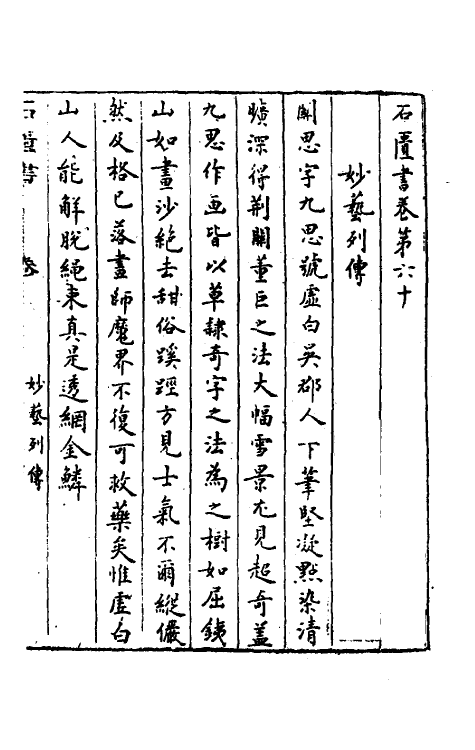 石匱書卷第六十
妙藝列傳
關思字九思號虛白吳郡人下筆堅凝點染清
曠深得荆關董巨之法大幅雪景尤見超奇蓋
九思作画皆以草隸奇字之法為之樹如屈鐵
山如畫沙絕去甜俗蹊踁方見士氣不爾縱儼
然及格已落畫師魔界不復可救藥矣惟虛白
山人能解脫繩束真是透網金鱗
石匱書 卷 妙藝列傳